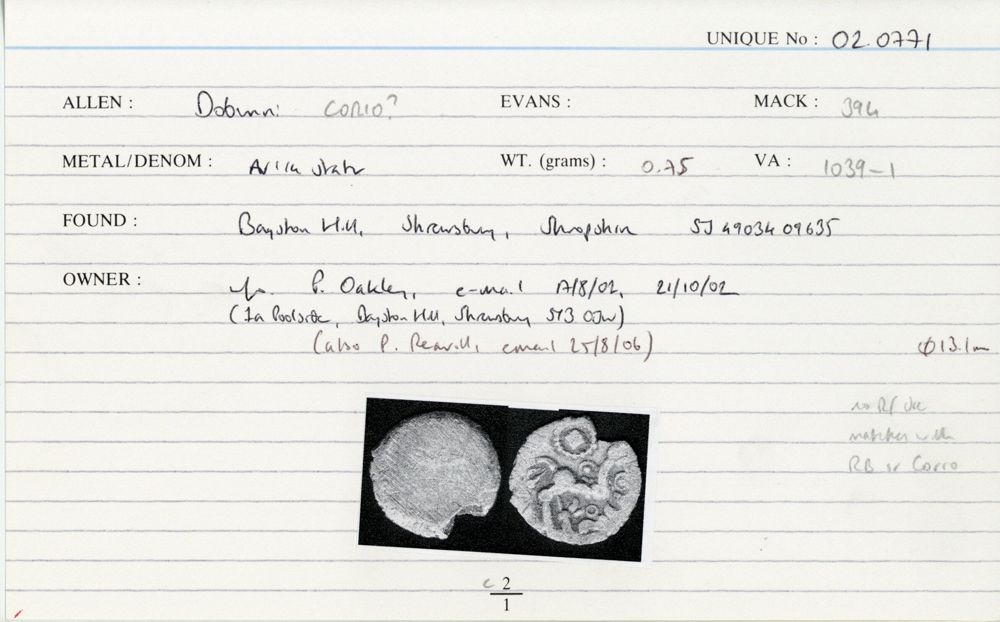 UNIQUE No : 02.0771
ALLEN : Dobunni CORIO? EVANS : MACK : 394
METAL/DENOM : WT. (grams) : 0.75 VA : 1039-1
FOUND : Bayston Hill, Shrewsbury, Shropshire SJ 49034 09635
OWNER : P. Oakley, e-mail 17/8/02, 21/10/02
(1a Poolside, Bayston Hill, Shrewsbury
(also P. Reavill, email 25/8/06) φ13.1mm
no
matches with
RB or Corio
c 2
1